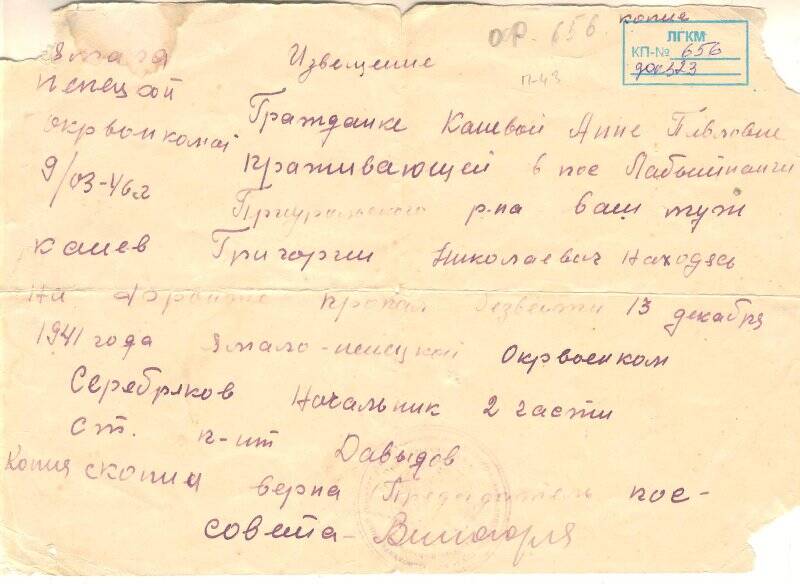 копие
ОФ. 656
ЛГКМ
КП-№ 656
док 323
П-43
Ямало Извещение
ненецкой
окрвоенкомат Гражданке Каневой Анне Павловне
9/03-46г проживающей в пос Лабытнанги
Приуральского р-на Ваш муж
Канев Григорги Николаевич Находясь
На фронте пропал безвести 13 декабря
1941 года Ямало-ненецкой Окрвоенком
Серебряков Начальник 2 части
ст. л-нт Давыдов
Копия скопии верна Председатель пос-
совета-